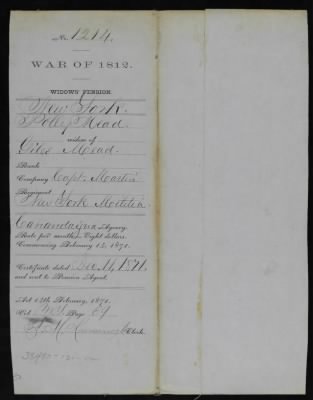 No. 1214.
WAR OF 1812.
WIDOWS PENSION.
New York.
Polly Mead.
widow of
Giles Mead.
Rank
Company Capt. Martin
Regiment
New York Militia
Canandaigua Agency.
Rate per month, Eight dollars.
Commencing February 14, 1871.
Certificate dated Dec. 11, 1871,
and sent to Pension Agent.
Act 14th February, 1871.
Vol. Page 69
Clerk.